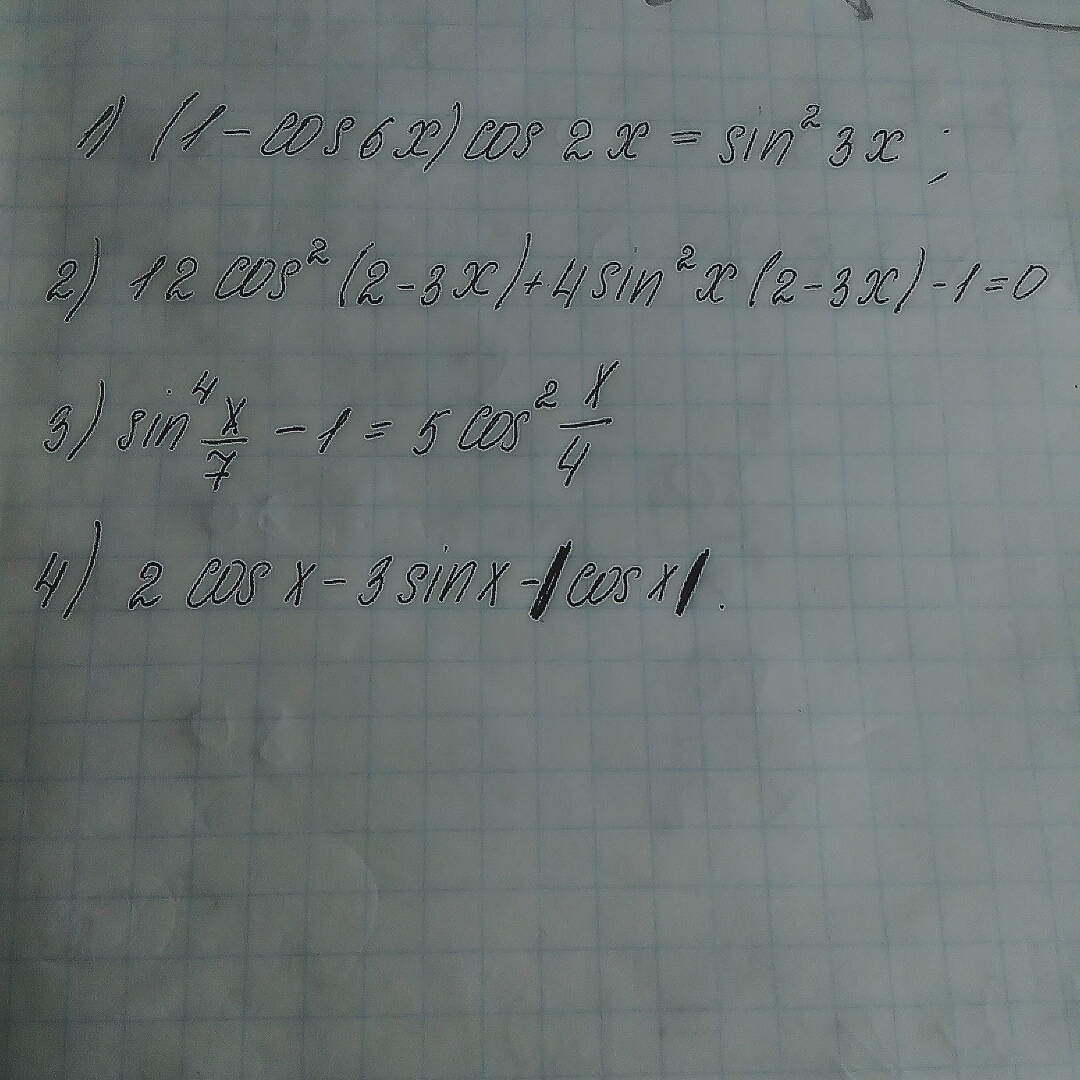 1) (1-cos6x)cos 2x = sin²3x;
2) 12cos²(2-3x)+4sin²x(2-3x)-1=0
3) sin⁴ x/7 - 1 = 5cos² x/4
4) 2 cos x - 3 sin x - |cos x|.